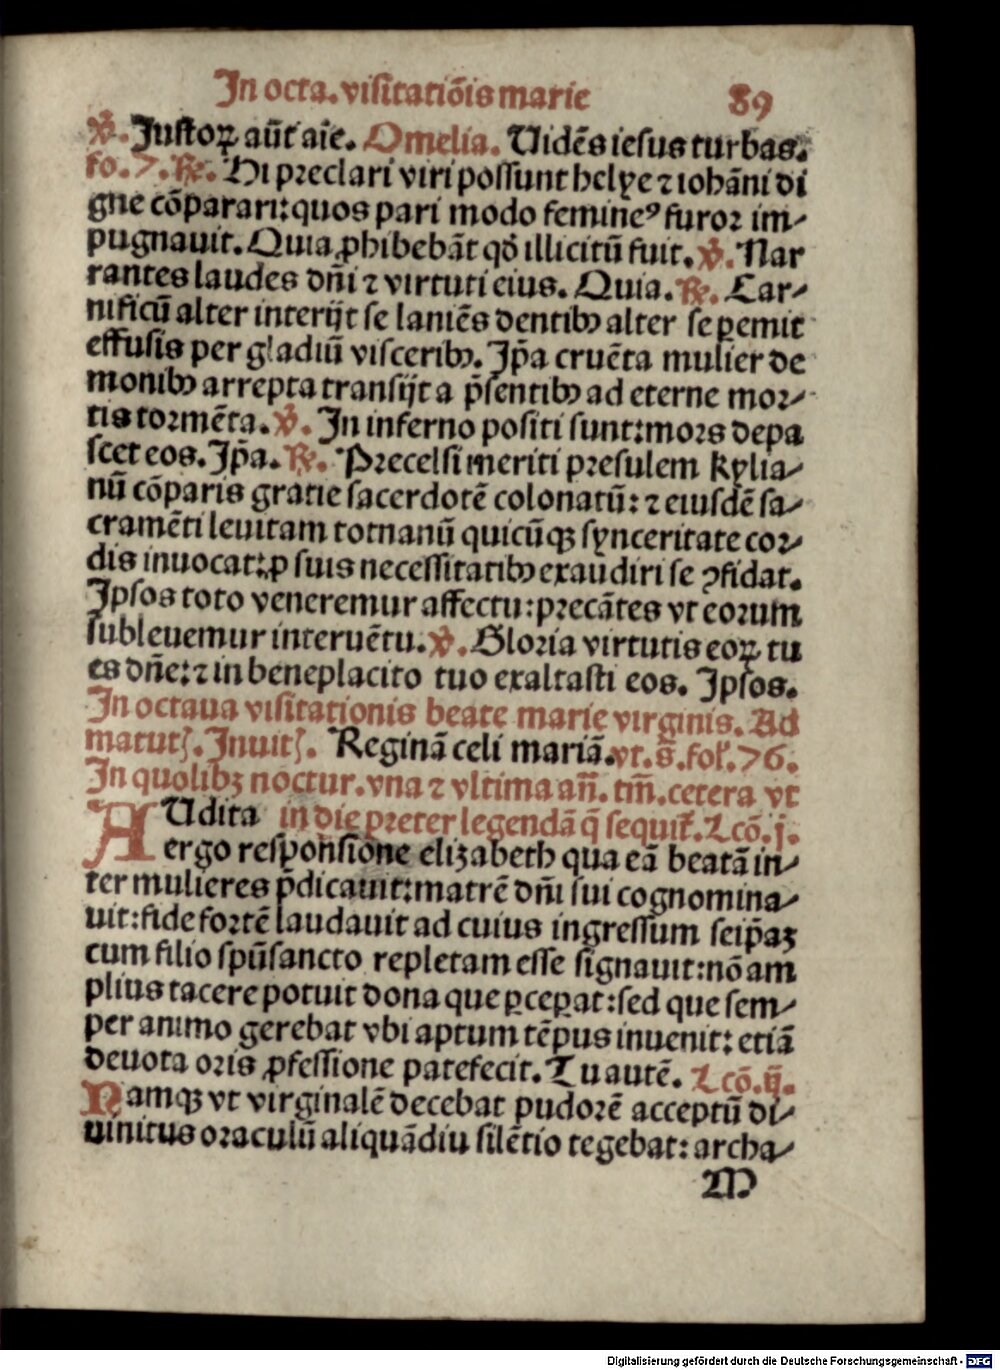 In octa. visitatiõis marie 89
℣. Justoꝝ aũt aĩe. Omelia. Uidẽs iesus turbas.
fo. 7. ℟. Hi preclari viri possunt helye ⁊ iohãni di
gne cõparari: quos pari modo femineꝰ furor im-
pugnauit. Quia ꝓhibebãt qđ illicitũ fuit. ℣. Nar
rantes laudes dñi ⁊ virtuti eius. Quia. ℟. Car-
nificũ alter interijt se laniẽs dentibꝰ alter se ꝑemit
effusis per gladiũ visceribꝰ. Jp̃a cruẽta mulier de
monibꝰ arrepta transijt a p̃sentibꝰ ad eterne mor-
tis tormẽta. ℣. In inferno positi sunt: mors depa
scet eos. Jp̃a. ℟. Precelsi meriti presulem kylia-
nũ cõparis gratie sacerdotẽ colonatũ: ⁊ eiusdẽ sa-
cramẽti leuitam totnanũ quicũqꝫ synceritate cor-
dis inuocat: ꝓ suis necessitatibꝰ exaudiri se ꝯfidat.
Ipsos toto veneremur affectu: precãtes vt eorum
subleuemur interuẽtu. ℣. Gloria virtutis eoꝝ tu
es dñe: ⁊ in beneplacito tuo exaltasti eos. Ipsos.
In octaua visitationis beate marie virginis. Ad
matutꝭ. Inuitꝭ. Reginã celi mariã. vt. s̃. fol. 76.
In quolibꝫ noctur. vna ⁊ vltima añ. tm̃. cetera vt
AUdita in die preter legendã q̃ sequit̃. Lcõ. j.
ergo responsione elizabeth qua eã beatã in-
ter mulieres p̃dicauit: matrẽ dñi sui cognomina-
uit: fide fortẽ laudauit ad cuius ingressum seip̃aꝫ
cum filio spũsancto repletam esse signauit: nõ am
plius tacere potuit dona que ꝑceꝑat: sed que sem-
per animo gerebat vbi aptum tẽpus inuenit: etiã
deuota oris ꝓfessione patefecit. Tu autẽ. Lcõ. ij.
Namqꝫ vt virginalẽ decebat pudorẽ acceptũ di-
uinitus oraculũ aliquãdiu silẽtio tegebat: archa-
M
Digitalisierung gefördert durch die Deutsche Forschungsgemeinschaft - DFG